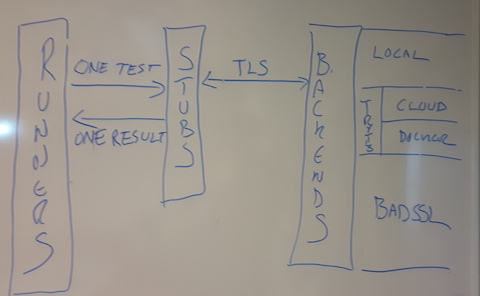 RUNNERS
ONE TEST
ONE RESULT
STUBS
TLS
BACKENDS
LOCAL
CLOUD
DOCKER
BADSSL